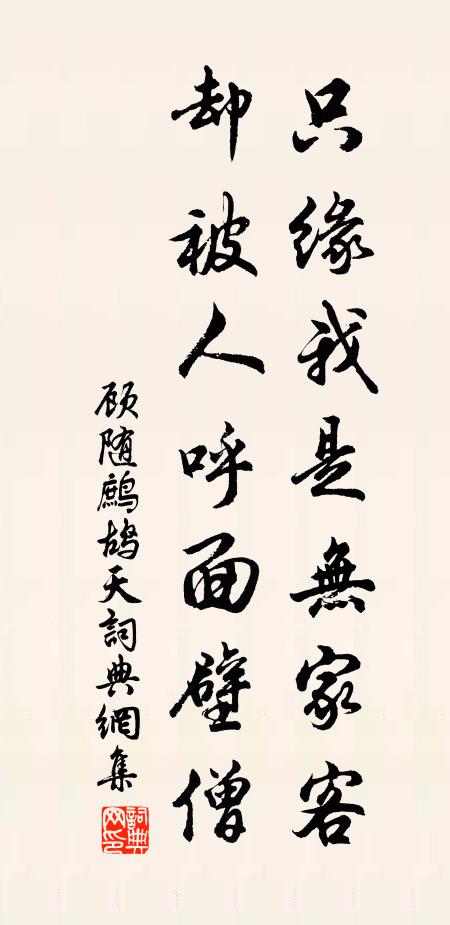 只缘我是無家客
却被人呼面壁僧
顾随鹧鸪天詞典網集
詞典网印